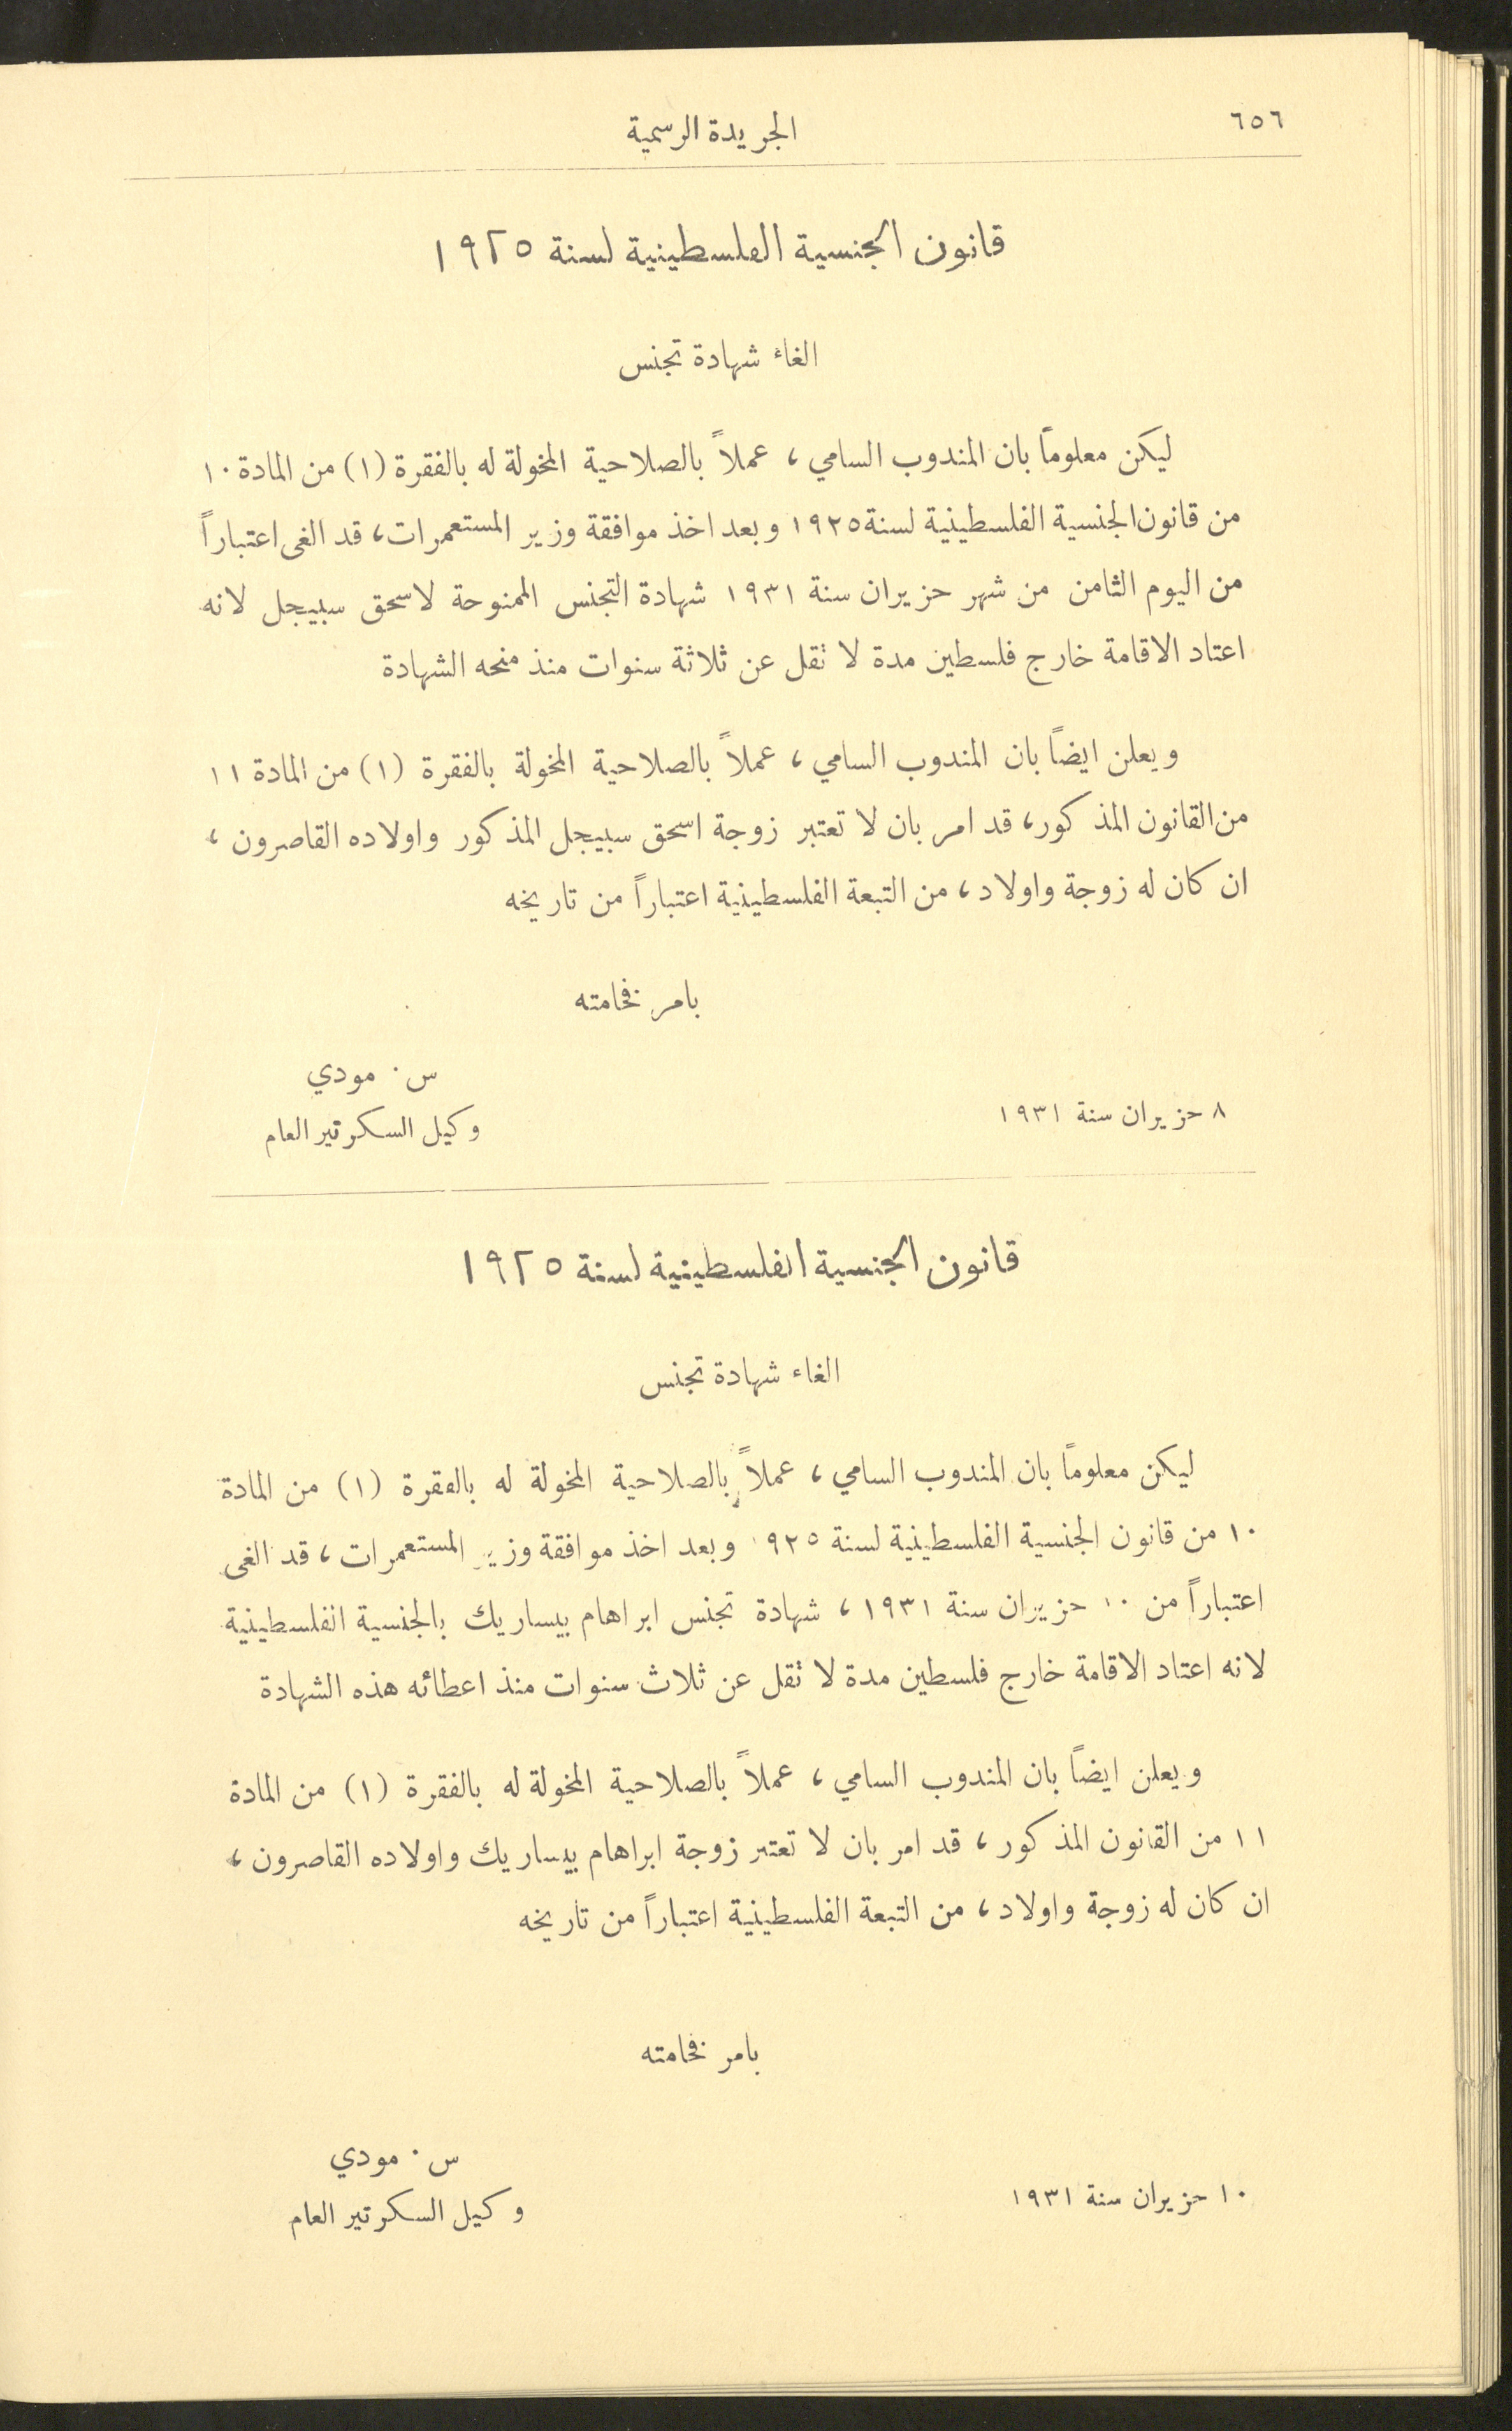 ٦٥٦
الجريدة الرسمية
قانون الجنسية الفلسطينية لسنة ١٩٢٥
الغاء شهادة تجنس
ليكن معلوماً بان المندوب السامي، عملاً بالصلاحية المخولة له بالفقرة (١) من المادة ١٠
من قانون الجنسية الفلسطينية لسنة ١٩٢٥ وبعد اخذ موافقة وزير المستعمرات، قد الغى اعتباراً
من اليوم الثامن من شهر حزيران سنة ١٩٣١ شهادة التجنس الممنوحة لاسحق سبيجل لانه
اعتاد الاقامة خارج فلسطين مدة لا تقل عن ثلاثة سنوات منذ منحه الشهادة
ويعلن ايضاً بان المندوب السامي، عملاً بالصلاحية المخولة بالفقرة (١) من المادة ١١
من القانون المذكور، قد امر بان لا تعتبر زوجة اسحق سبيجل المذكور واولاده القاصرون،
ان كان له زوجة واولاد، من التبعة الفلسطينية اعتباراً من تاريخه
بامر فخامته
س. مودي
٨ حزيران سنة ١٩٣١
وكيل السكرتير العام
قانون الجنسية الفلسطينية لسنة ١٩٢٥
الغاء شهادة تجنس
ليكن معلوماً بان المندوب السامي، عملاً بالصلاحية المخولة له بالفقرة (١) من المادة
١٠ من قانون الجنسية الفلسطينية لسنة ١٩٢٥ وبعد اخذ موافقة وزير المستعمرات، قد الغى
اعتباراً من ١٠ حزيران سنة ١٩٣١، شهادة تجنس ابراهام بيساريك بالجنسية الفلسطينية
لانه اعتاد الاقامة خارج فلسطين مدة لا تقل عن ثلاث سنوات منذ اعطائه هذه الشهادة
ويعلن ايضاً بان المندوب السامي، عملاً بالصلاحية المخولة له بالفقرة (١) من المادة
١١ من القانون المذكور، قد امر بان لا تعتبر زوجة ابراهام بيساريك واولاده القاصرون،
ان كان له زوجة واولاد، من التبعة الفلسطينية اعتباراً من تاريخه
بامر فخامته
س. مودي
١٠ حزيران سنة ١٩٣١
وكيل السكرتير العام